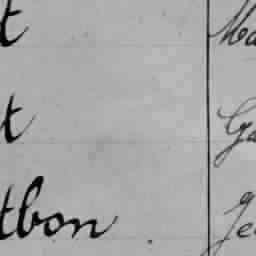 t Ma
t Ga
tbon Je